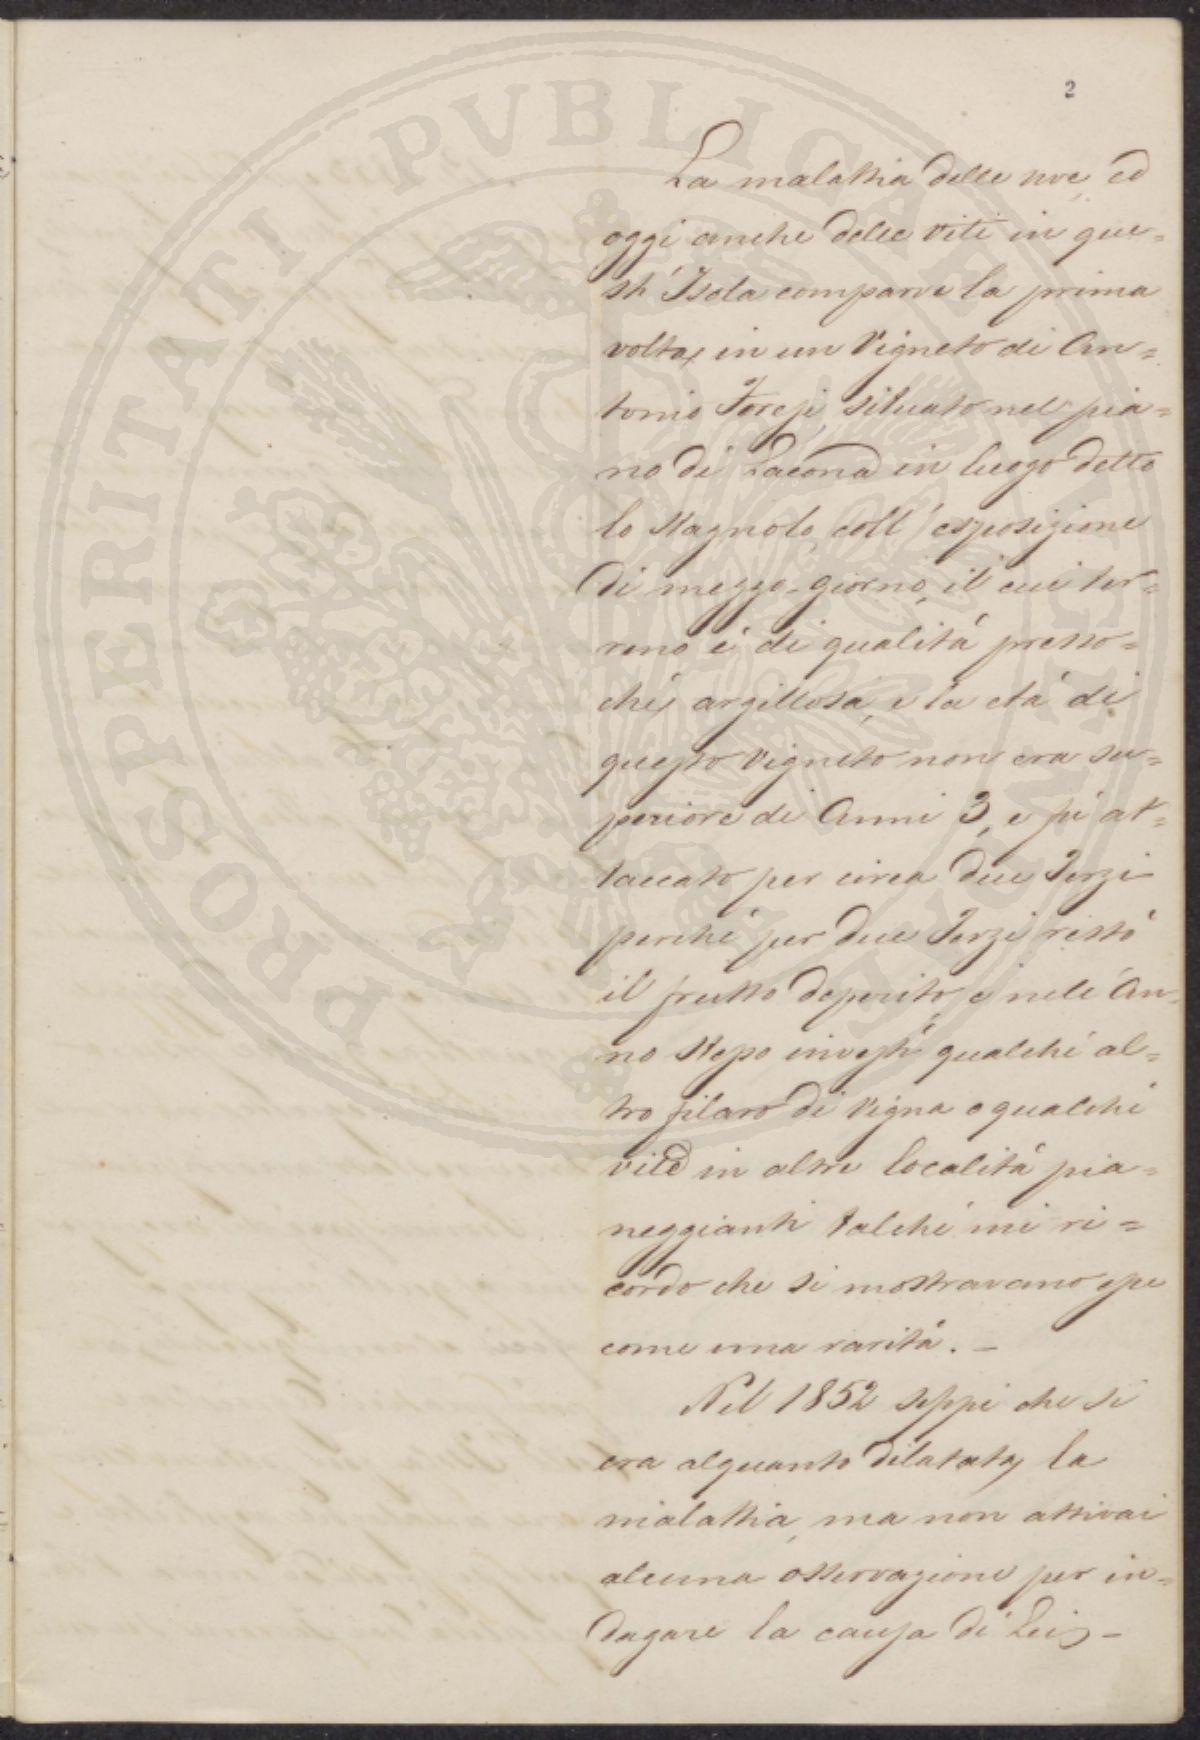 2
La malattia delle uve, ed
oggi anche delle viti in que=
st' Isola comparve la prima
volta, in un Vigneto di An=
tonio Foresi, situato nel pia=
no di Lacona in luogo detto
lo Stagnolo, coll' esposizione
di mezzo-giorno, il cui ter=
reno é di qualitá presso=
ché argillosa, e la etá di
questo Vigneto non era su=
periore di Anni 3, e fú at=
taccato per circa due Terzi
perché per due Terzi restó
il frutto deperito, e nell' An=
no stesso investí qualché al=
tro filaro di Vigna o qualché
vite in altre localitá pia=
neggianti talché mi ri=
cordo che si mostravano
come una raritá. -
Nel 1852 seppi che si
era alquanto dilatata la
malattia, ma non attivai
alcuna osservazione per in=
dagare la causa di Lei -
PROSPERITATI PVBLICAE